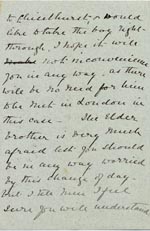 to Chiselhurst, or would
like to take the boy right
through. I hope it will
not inconvenience
you in any way - as there
will be no need for him
to be met in London in
this case. The Elder
brother is very much
afraid lest you should
be in any way worried
by this change of day -
but I tell him I feel
sure you will understand